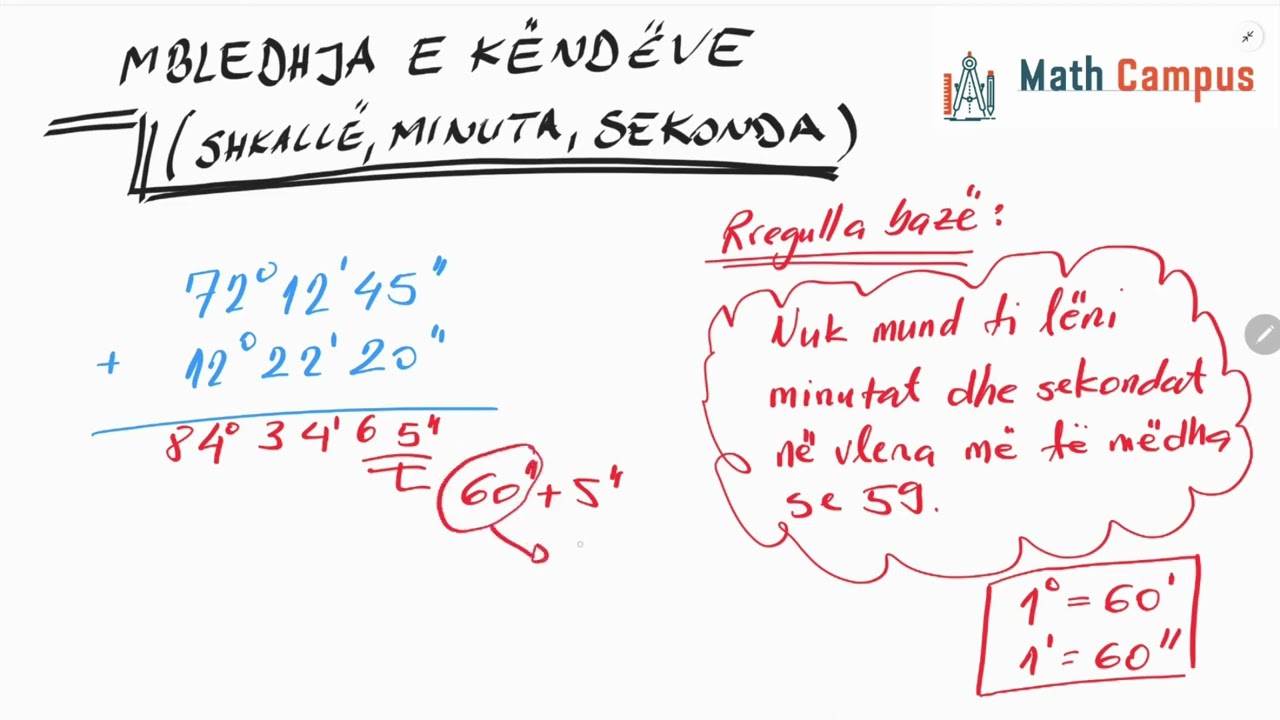 MBLEDHJA E KËNDËVE
(SHKALLË, MINUTA, SEKONDA)
Math Campus
72° 12' 45"
+ 12° 22' 20"
84° 34' 65"
60" + 5"
Rregulla bazë:
Nuk mund ti lëni
minutat dhe sekondat
në vlera më të mëdha
se 59.
1° = 60'
1' = 60"